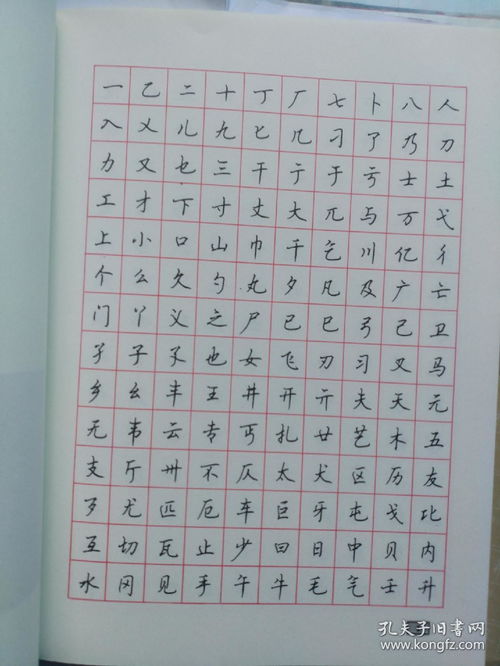 一乙二十丁厂七卜八人
入乂儿九匕几刁了乃刀
力又也三干亍于亏士土
工才下寸丈大兀与万弋
上小口山巾千乞川亿彳
个么久勺丸夕凡及广亡
门丫义之尸已巳弓己卫
孑子孓也女飞刃习叉马
乡幺丰王井开亓夫天元
无韦云专丐扎廿艺木五
支厅卅不仄太犬区历友
歹尤匹厄车巨牙屯戈比
互切瓦止少曰日中贝内
水冈见手午牛毛气壬升
孔夫子旧书网
www.kongfz.com